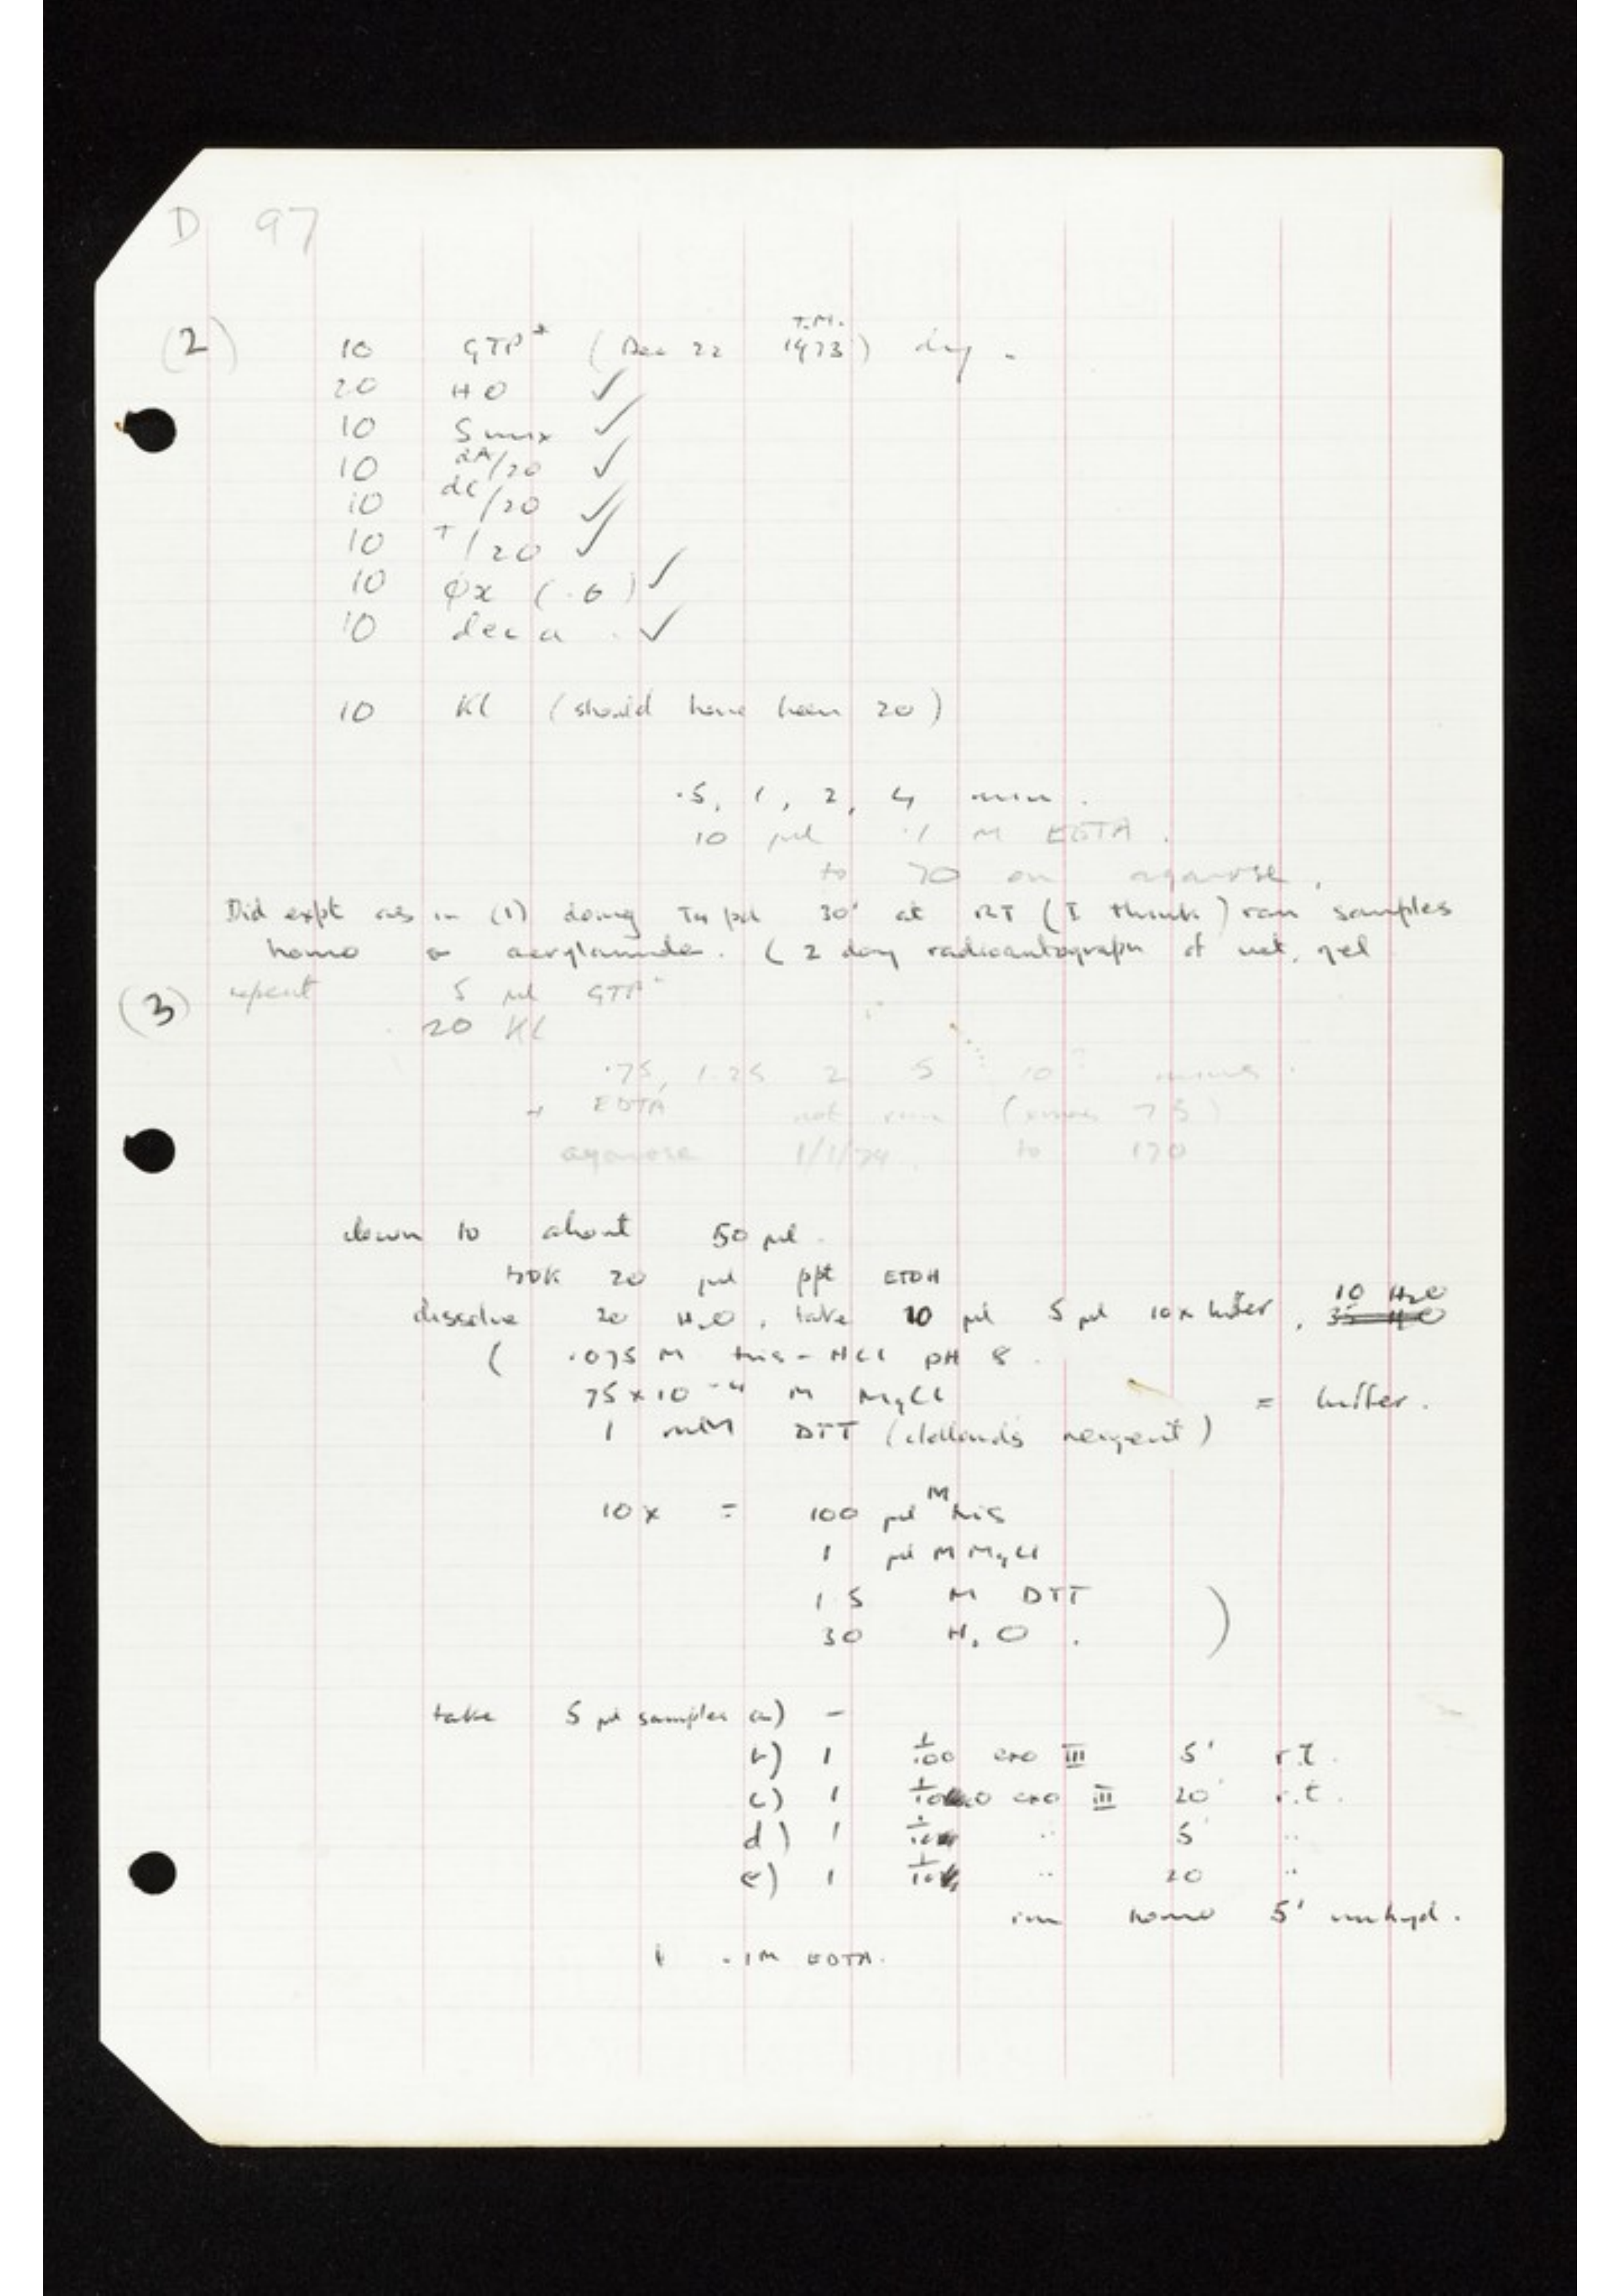 D 97
(2) 10 GTP* (Dec 22 T.M. 1973) dry.
20 H O ✓
10 S mix ✓
10 dA/20 ✓
10 dC/20 ✓
10 T/20 ✓
10 φx (.6) ✓
10 deca. ✓
10 Kl (should have been 20)
.5, 1, 2, 4 min.
10 μl .1 M EDTA.
to 70 on agarose.
Did expt as in (1) doing T4 pol 30' at RT (I think) ran samples
homo on acrylamide. (2 day radioautograph of wet gel
(3) repeat 5 μl GTP*
20 Kl
.75, 1.25 2 5 10 mins.
→ EDTA not run
agarose 1/1/74. to 170
down to about 50 μl.
20 μl ppt ETOH
dissolve 20 H2O, take 10 μl 5 μl 10x buffer, 10 H2O
( .075 M tris-HCl pH 8.
75 x 10⁻⁴ M MgCl = buffer.
1 mM DTT (clellands reagent)
10x = 100 μl M tris
1 μl M MgCl
1 5 M DTT
30 H2O. )
take 5 μl samples a) -
b) 1 1/100 exo III 5' r.t.
c) 1 exo III 20' r.t.
d) 1 " 5' "
e) 1 " 20 "
run homo 5' unhyd.
1 .1M EDTA.